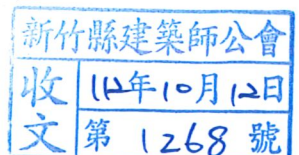 新竹縣建築師公會
收文
112年10月12日
第 1268 號